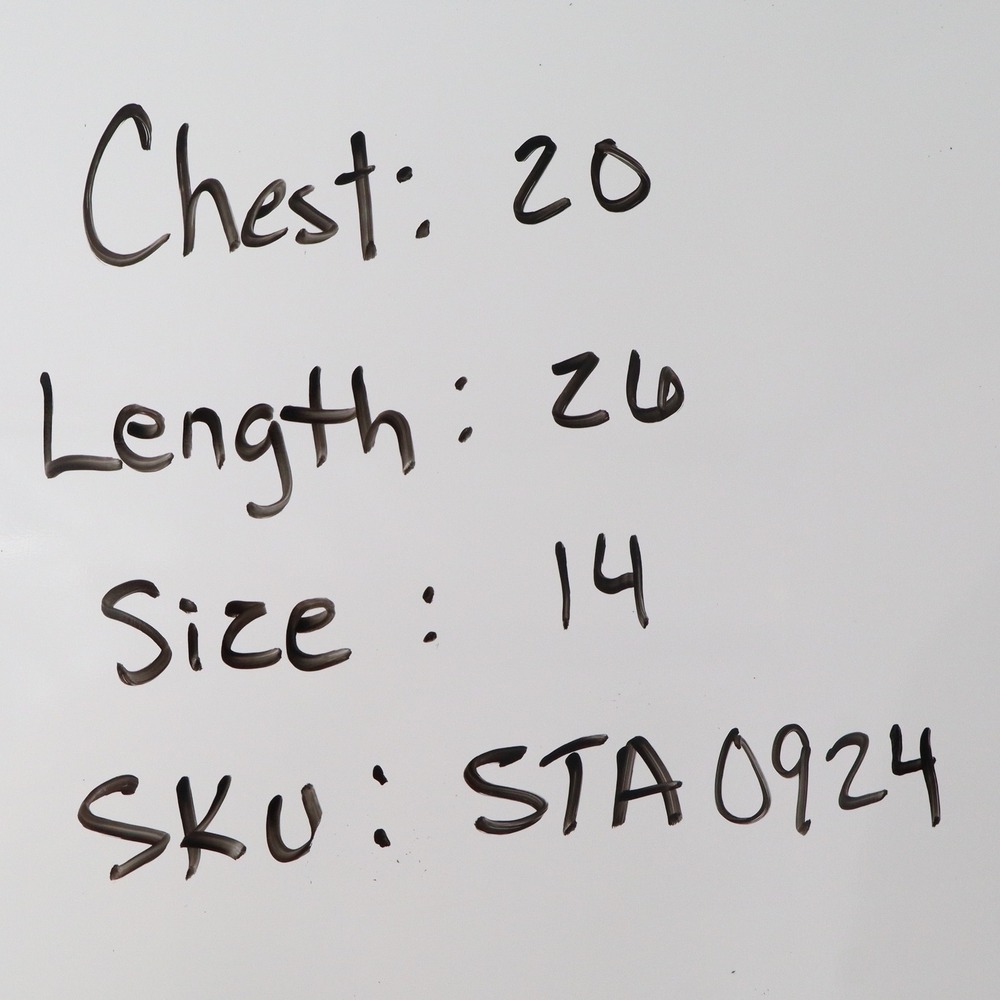 Chest: 20
Length: 26
Size: 14
SKU: STA0924